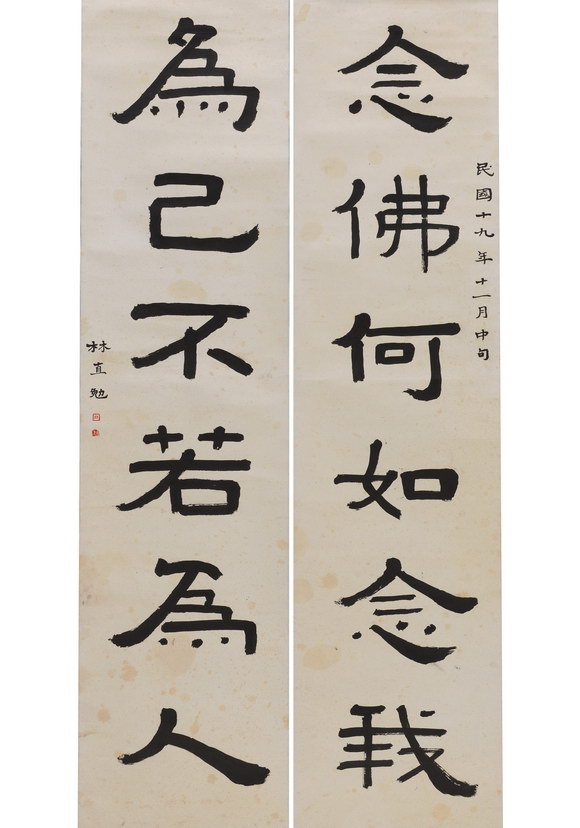 民國十九年十一月中旬
念佛何如念我
為己不若為人
林直勉